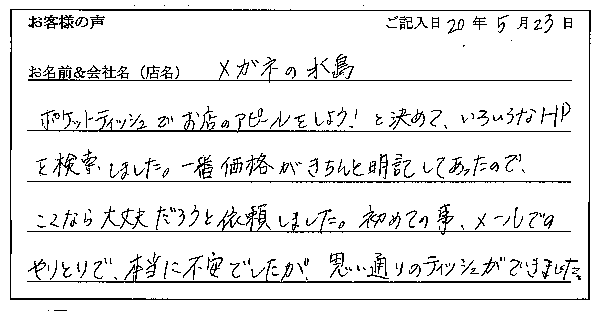 お客様の声 ご記入日 20 年 5 月 23 日
お名前&会社名（店名） メガネの水島
ポケットティッシュでお店のアピールをしよう！と決めて、いろいろなHP
を検索しました。一番価格がきちんと明記してあったので、
ここなら大丈夫だろうと依頼しました。初めての事、メールでの
やりとりで、本当に不安でしたが、思い通りのティッシュができました。